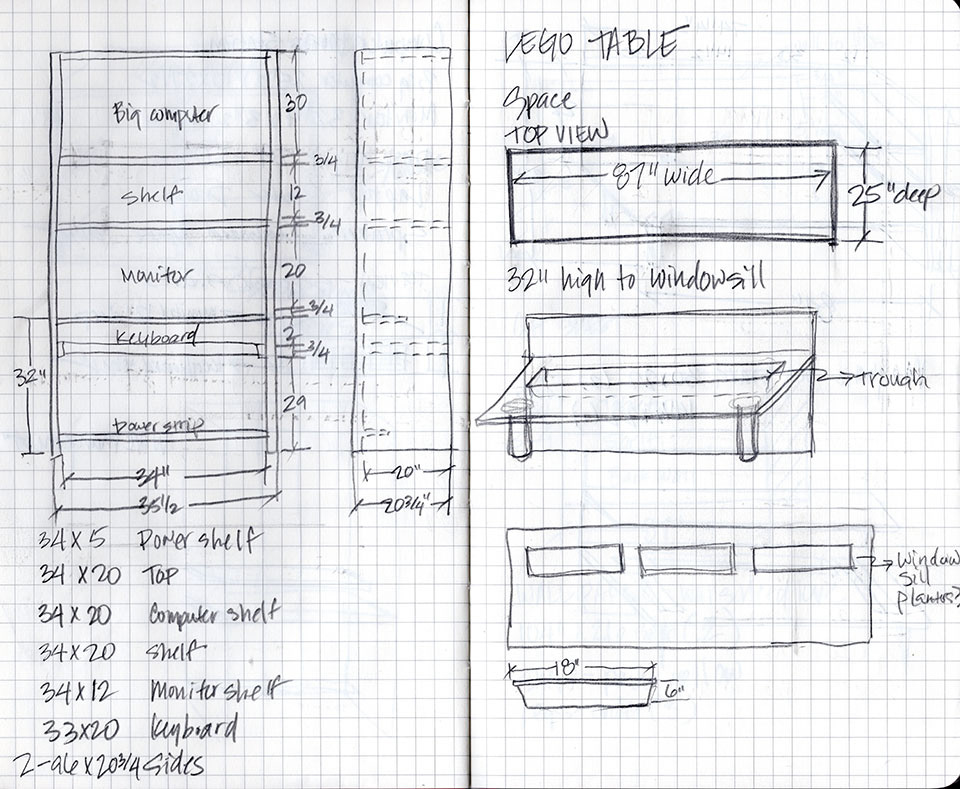 Big computer
30
3/4
Shelf
12
3/4
Monitor
20
3/4
Keyboard
2
3/4
32"
29
power strip
34"
35 1/2
20"
20 3/4"
34 X 5 Power shelf
34 X 20 Top
34 X 20 Computer shelf
34 X 20 Shelf
34 X 12 Monitor shelf
33 X 20 Keyboard
2-96 X 20 3/4 Sides
LEGO TABLE
Space
TOP VIEW
87" wide
25" deep
32" high to windowsill
trough
Window
sill
planters?
18"
6"